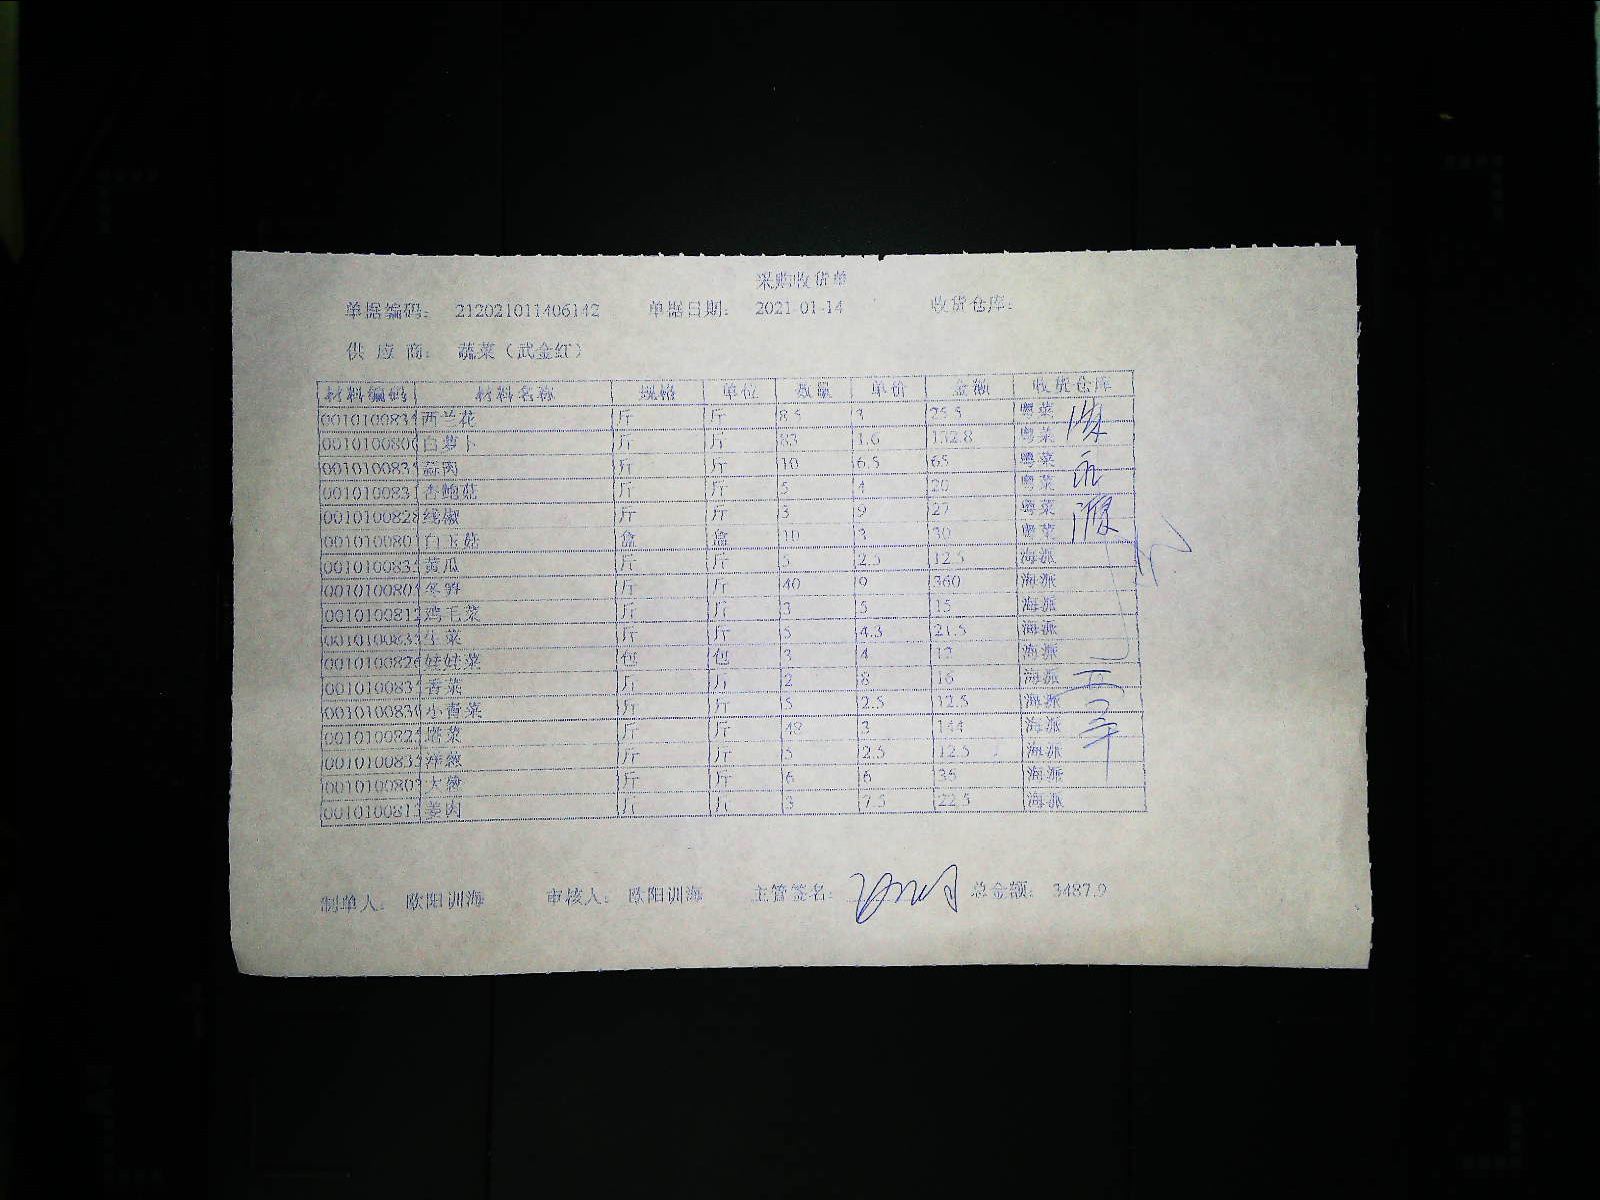 采购收货单
单据编码： 212021011406142 单据日期： 2021-01-14 收货仓库：
供 应 商： 蔬菜（武金红）
材料编码 材料名称 规格 单位 数量 单价 金额 收货仓库
001010083 西兰花 斤 斤 8.5 3 25.5 粤菜
001010080 白萝卜 斤 斤 83 1.6 132.8 粤菜
001010083 蒜肉 斤 斤 10 6.5 65 粤菜
001010083 杏鲍菇 斤 斤 5 4 20 粤菜
001010082 线椒 斤 斤 3 9 27 粤菜
001010080 白玉菇 盒 盒 10 3 30 粤菜
001010083 黄瓜 斤 斤 5 2.5 12.5 海派
001010080 冬笋 斤 斤 40 9 360 海派
001010081 鸡毛菜 斤 斤 3 5 15 海派
001010083 生菜 斤 斤 5 4.3 21.5 海派
001010082 娃娃菜 包 包 3 4 12 海派
001010083 香菜 斤 斤 2 8 16 海派
001010083 小青菜 斤 斤 5 2.5 12.5 海派
001010082 塔菜 斤 斤 48 3 144 海派
001010083 洋葱 斤 斤 5 2.5 12.5 海派
001010080 大葱 斤 斤 6 6 海派
001010081 姜肉 斤 斤 3 7.5 22.5 海派
制单人： 欧阳训海 审核人： 欧阳训海 主管签名： 总金额： 3487.9